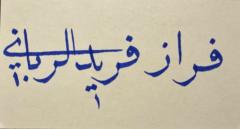 فراز فريد الرباني